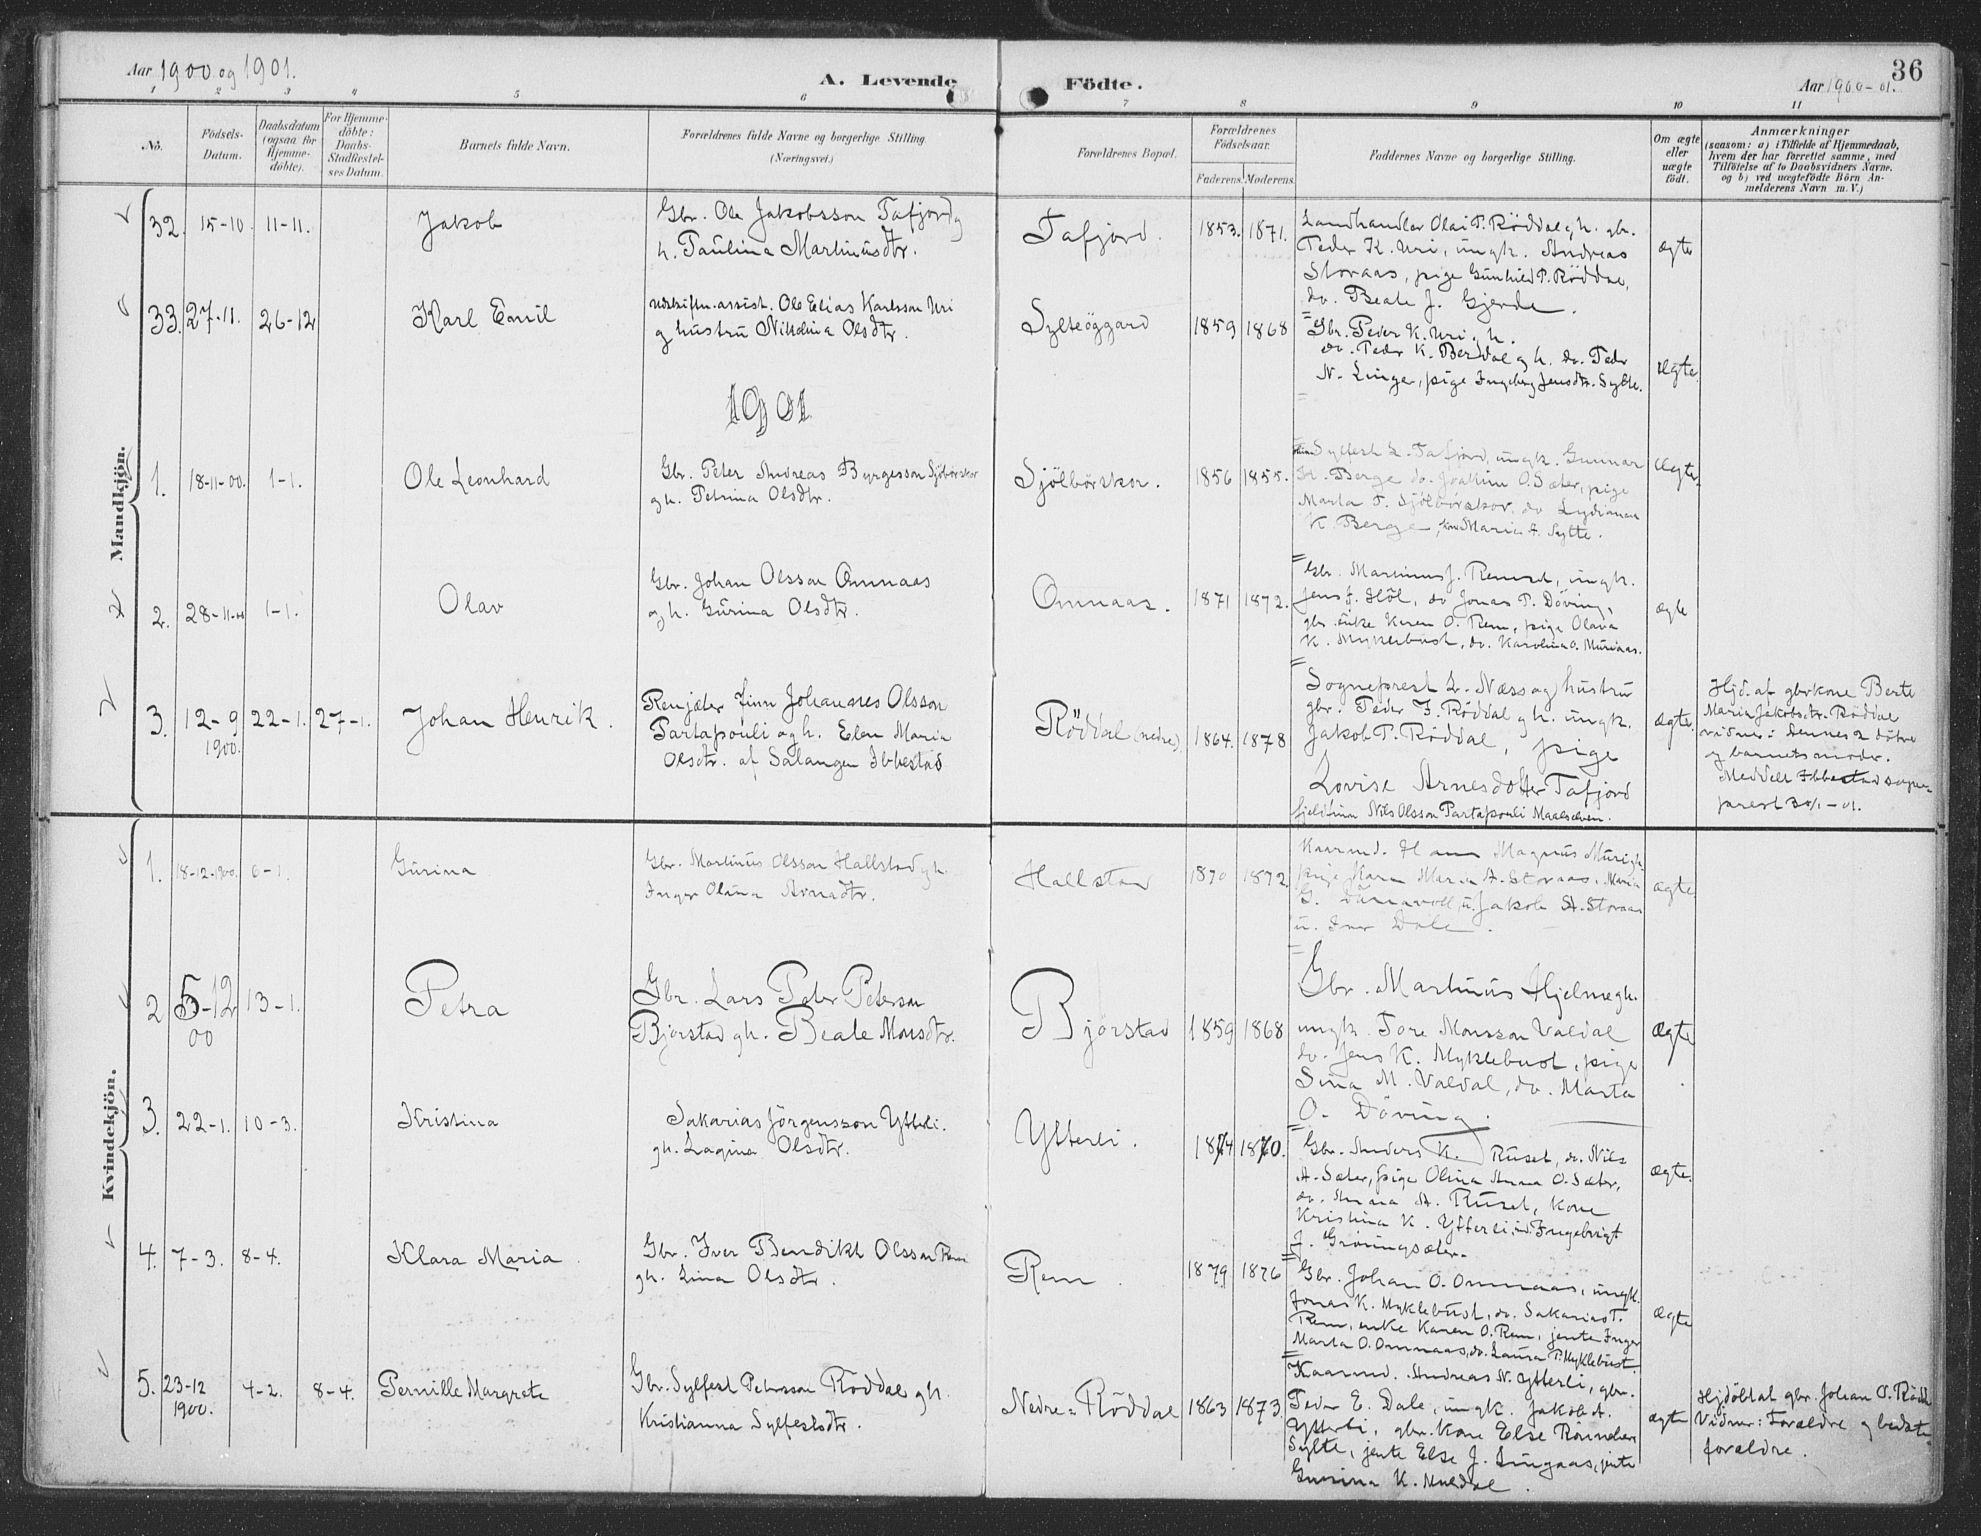 36
Aar 1900 og 1901.
A. Levende Födte.
Aar 1900-01.
1 2 3 4 5 6 7 8 9 10 11
No.
Födsels-
Datum.
Daabsdatum
(ogsaa for
Hjemme-
döbte).
For Hjemme-
döbte:
Daabs-
Stadfæstel-
ses Datum.
Barnets fulde Navn.
Forældrenes fulde Navne og borgerlige Stilling.
(Næringsvei.)
Forældrenes Bopæl.
Forældrenes
Födselsaar.
Faderens. Moderens.
Faddernes Navne og borgerlige Stilling.
Om ægte
eller
uægte
födt.
Anmærkninger
(saasom: a) i Tilfælde af Hjemmedaab,
hvem der har forrettet samme, med
Tilföielse af to Daabsvidners Navne.
og b) ved uægtefödte Börn An-
melderens Navn m. V.)
Mandkjön.
32. 15-10. 11-11.
Jakob
Gbr. Ole Jakobsson Tafjord og
h. Paulina Martinusdtr.
Tafjord.
1853. 1871.
Landhandler Olai P. Röddal g h. gbr.
Peder K. Uri, ungk. Andreas
Storaas, pige Gunhild P. Röddal,
do. Beate J. Gjerde.
ægte
33. 27-11. 26-12
Karl Emil
assist. Ole Elias Karlsson Uri
og hustru Nikolina Olsdtr.
Sylteöggard
1859 1868
Gbr. Peder K. Uri g h.
do. Peder K. Berdal g h. do. Peder
N. Linge, pige Ingeborg Jensdtr. Sylte.
ægte.
1901
1. 18-11-00. 1-1.
Ole Leonhard
Gbr. Peter Andreas Byrgesson Sjölbörskor
g h. Petrina Olsdtr.
Sjölbörskor.
1856 1855.
Sylfest L. Tafjord, ungk. Gunnar
K. Berge do. Joakim O. Sæter, pige
Marta P. Sjölbörskor, do Lydianna
K. Berge, Maria A. Sylte.
Ægte.
2. 28-11-00 1-1.
Olav
Gbr. Johan Olsson Omnaas
og h. Gurina Olsdtr.
Omnaas.
1871 1872.
Gbr. Martinus J. Remsd, ungk.
Jens J. Höl, do Jonas P. Döving,
gbr. enke Karen O. Rem, pige Olava
K. Myklebust, do. Karolina O. Muriaas.
ægte
3. 12-9 22-1. 27-1.
1900.
Johan Henrik.
Renjæter finn Johannes Olsson
Partapouli og h. Elen Maria
Olsdtr. af Salangen Ibbestad
Röddal (nedre)
1864. 1878
Sogneprest L. Næss og hustru
gbr. Peder J. Röddal g h. ungk.
Jakob P. Röddal, pige
Lovise Arnesdotter Tafjord
fjeldfinn Nils Olsson Partapouli Maalselven.
ægte
Hjd. af gbrkone Berte
Maria Jakobsdtr. Röddal
vidner: dennes 2 dötre
og barnets moder.
Meddelt Ibbestad sogne-
prest 30/1-01.
Kvindekjön.
1. 18-12-1900. 6-1.
Gurina
Gbr. Martinus Olsson Hallstad g h.
Inger Olina Arnadtr.
Hallstad
1870 1872
Kaarmd. Hans Magnus Muri g h.
pige Kara Maria A. Storaas, Maria
G. Dönnavoll, u. Jakob A. Storaas
u. Iver Dale.
ægte
2 5-12 13-1.
00
Petra
Gbr. Lars Peter Peterson
Bjorstad g h. Beate Monsdtr.
Bjorstad
1859 1868
Gbr. Martinus Hjelme g h.
ungk. Tore Monsson Valdal
do. Jens K. Myklebust, pige
Sina M. Valdal, do. Marta
O. Döving.
Ægte
3. 22-1. 10-3.
Kristina
Sakarias Jörgensson Ytterli.
g h. Lagina Olsdtr.
Ytterli.
1874 1870.
Gbr. Anders K. Ruset, do. Nils
A. Sæter, pige Olina Anna O. Sæter,
do. Anna A. Ruset, kone
Kristina K. Ytterli, u. Ingebrigt
J. Gröningsæter.
ægte.
4. 7-3. 8-4.
Klara Maria.
Gbr. Iver Bendikt Olsson Rem
g h. Lina Olsdtr.
Rem.
1879 1876
Gbr. Johan O. Omnaas, ungk.
Jonas K. Myklebust, do. Sakarias T.
Rem, enke Karen O. Rem, jente Inger
Marta O. Omnaas, do. Laura P. Myklebust.
ægte
5. 23-12 4-2. 8-4.
1900.
Pernille Margrete
Gbr. Sylfest Petersson Röddal g h.
Kristianna Sylfestsdtr.
Nedre-Röddal
1863 1873.
Kaarmd. Andreas N. Ytterli, gbr.
Peder E. Dale, ungk. Jakob A.
Ytterli, gbr. kone Else
Sylte, jente Else J. Lingaas, jente
Gurina K. Muldal.
ægte
Hjdöbtat gbr. Johan O. Rödd.
Vidner: Forældre og bedste-
forældre.